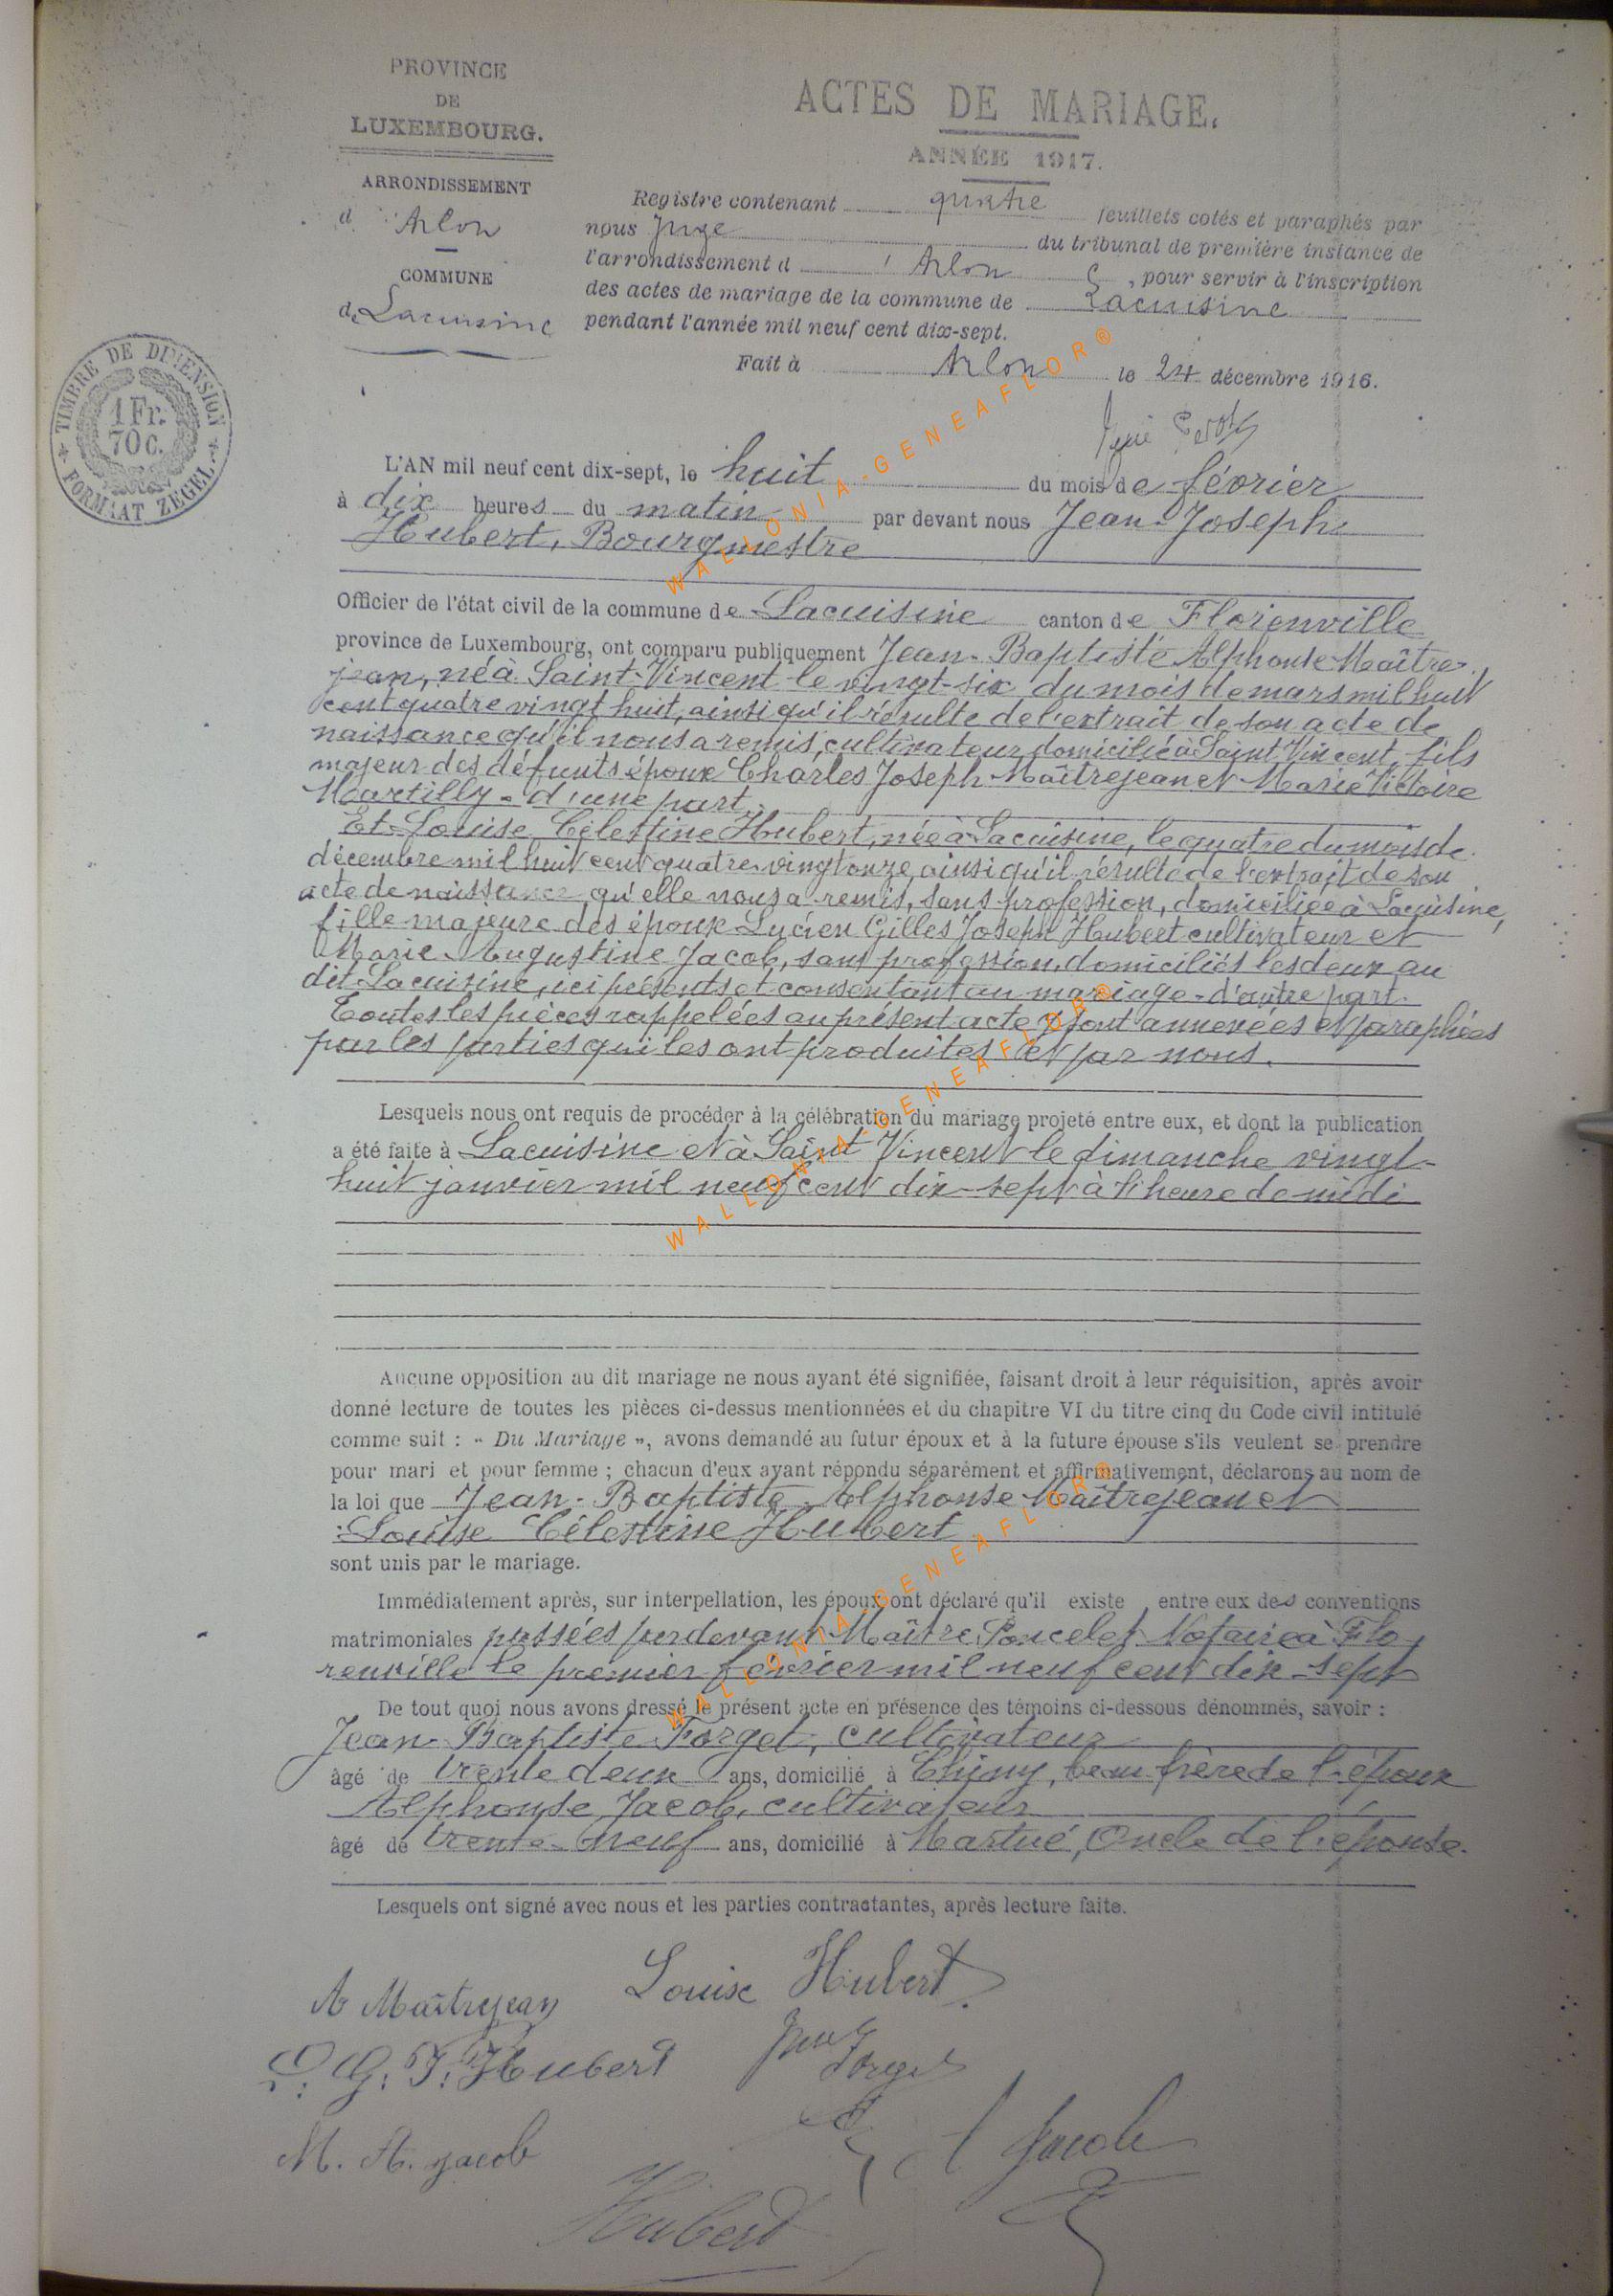 PROVINCE
DE
LUXEMBOURG.
ARRONDISSEMENT
d'Arlon
COMMUNE
de Lacuisine
TIMBRE DE DIMENSION
1 Fr.
70 c.
FORMAAT ZEGEL
ACTES DE MARIAGE.
ANNÉE 1917.
Registre contenant quatre feuillets cotés et paraphés par
nous Juge du tribunal de première instance de
l'arrondissement d'Arlon, pour servir à l'inscription
des actes de mariage de la commune de Lacuisine
pendant l'année mil neuf cent dix-sept.
Fait à Arlon le 24 décembre 1916.
L'AN mil neuf cent dix-sept, le huit du mois de février
à dix heures du matin par devant nous Jean-Joseph
Hubert, Bourgmestre
Officier de l'état civil de la commune de Lacuisine canton de Florenville
province de Luxembourg, ont comparu publiquement Jean-Baptiste Alphonse Maître-
jean, né à Saint-Vincent le vingt-six du mois de mars mil huit
cent quatre vingt huit, ainsi qu'il résulte de l'extrait de son acte de
naissance qu'il nous a remis, cultivateur, domicilié à Saint Vincent, fils
majeur des défunts époux Charles Joseph Maîtrejean et Marie Victoire
Martilly - d'une part.
Et Louise Célestine Hubert, née à Lacuisine, le quatre du mois de
décembre mil huit cent quatre-vingt onze, ainsi qu'il résulte de l'extrait de son
acte de naissance qu'elle nous a remis, sans profession, domiciliée à Lacuisine,
fille majeure des époux Lucien Gilles Joseph Hubert cultivateur et
Marie-Augustine Jacob, sans profession, domiciliés les deux au
dit Lacuisine, ici présents et consentant au mariage - d'autre part.
Toutes les pièces rappelées au présent acte y sont annexées et paraphées
par les parties qui les ont produites et par nous.
Lesquels nous ont requis de procéder à la célébration du mariage projeté entre eux, et dont la publication
a été faite à Lacuisine et à Saint Vincent le dimanche vingt-
huit janvier mil neuf cent dix-sept à l'heure de midi
Aucune opposition au dit mariage ne nous ayant été signifiée, faisant droit à leur réquisition, après avoir
donné lecture de toutes les pièces ci-dessus mentionnées et du chapitre VI du titre cinq du Code civil intitulé
comme suit : « Du Mariage », avons demandé au futur époux et à la future épouse s'ils veulent se prendre
pour mari et pour femme ; chacun d'eux ayant répondu séparément et affirmativement, déclarons au nom de
la loi que Jean-Baptiste Alphonse Maîtrejean et
Louise Célestine Hubert
sont unis par le mariage.
Immédiatement après, sur interpellation, les époux ont déclaré qu'il existe entre eux des conventions
matrimoniales passées pardevant Maître Poncelet Notaire à Flo-
renville le premier février mil neuf cent dix-sept
De tout quoi nous avons dressé le présent acte en présence des témoins ci-dessous dénommés, savoir :
Jean-Baptiste Forget, cultivateur
âgé de trente deux ans, domicilié à Chiny, beau frère de l'époux
Alphonse Jacob, cultivateur
âgé de trente-neuf ans, domicilié à Martué, Oncle de l'épouse.
Lesquels ont signé avec nous et les parties contractantes, après lecture faite.
A Maîtrejean Louise Hubert
L. G. J. Hubert Forget
M. A. Jacob A Jacob
Hubert
WALLONIA-GENEAFLOR®
WALLONIA-GENEAFLOR®
WALLONIA-GENEAFLOR®